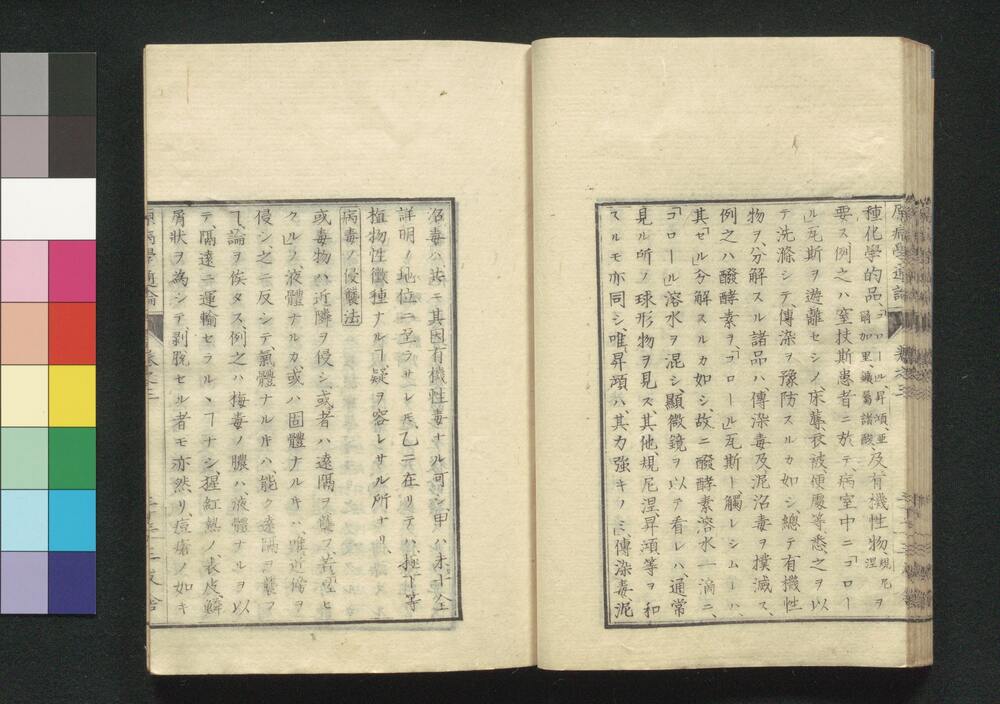 原病學通論
卷之三
種化學的品、「コロール」、昇汞、亜鉛加里、礦屬諸酸、及有機性物、規尼涅ヲ
要ス例之ハ窒扶斯患者ニ於テ、病室中ニ「コロー
ル」瓦斯ヲ遊離セシメ、床蓐、衣被、便處等悉、之ヲ以
テ洗滌シテ、傳染ヲ豫防スルカ如シ、總テ有機性
物ヲ、分解スル諸品ハ、傳染毒及泥沼毒ヲ撲滅ス、
例之ハ醱酵素ヲ、「コロール」瓦斯ニ觸レシムレハ、
其「ゼ」ル分解スルカ如シ、故ニ醱酵素溶水一滴ニ、
「コロール」溶水ヲ混シ、顯微鏡ヲ以テ看レハ、通常
見ル所ノ球形物ヲ見ス、其他、規尼涅、昇汞、等ヲ和
スルモ亦同シ、唯昇汞ハ、其力強キノミ、傳染毒、泥
沼毒ハ、共ニ其因有機性毒ナル可シ、甲ハ未ダ全
詳明ノ地位ニ至ラサレ𪜈、乙ニ在リテハ、極下等
植物性黴種ナルヿ疑ヲ容レサル所ナリ、
病毒ノ侵襲法
或毒物ハ近隣ヲ侵シ、或者ハ遠隔ヲ襲フ、若空ヒ
クル」ノ液體ナルカ或ハ固體ナルキハ、唯近傍ヲ
侵シ、之ニ反シテ、氣體ナルキハ、能ク遠隔ヲ襲フ
ヿ、論ヲ俟タス、例之ハ梅毒ノ膿ハ、液體ナルヲ以
テ、隔遠ニ運輸セラル、ヿナシ、猩紅熱ノ、表皮、鱗
屑狀ヲ為シテ、剥脱セル者モ亦然リ、痘瘡ノ如キ
原病學通論
卷之三